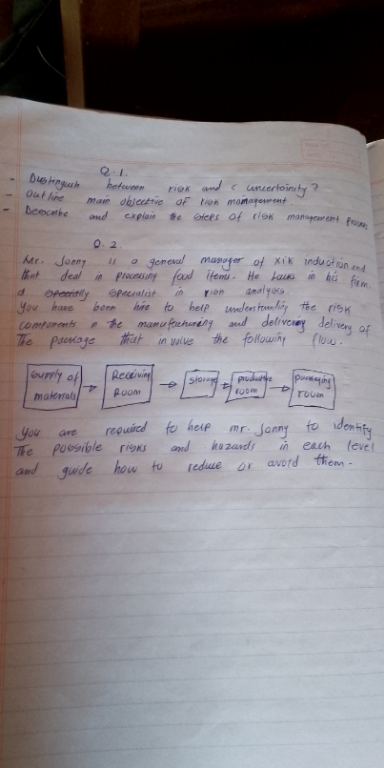 Q.1.
- Distinguish between risk and uncertainity?
- Outline main objective of risk management.
- Describe and explain the steps of risk management process
Q.2.
Mr. Jonny is a general manager of XIK
that deal in processing food items. He lacks in his firm
a specially specialist in risk analysis.
You have been hire to help understanding the risk
components in the manufacturing and delivery delivery of
The package that involve the following flow.
supply of materials
Receiving Room
storage
productive room
packaging room
You are required to help mr. Jonny to identify
The possible risks and hazards in each level
and guide how to reduce or avoid them.